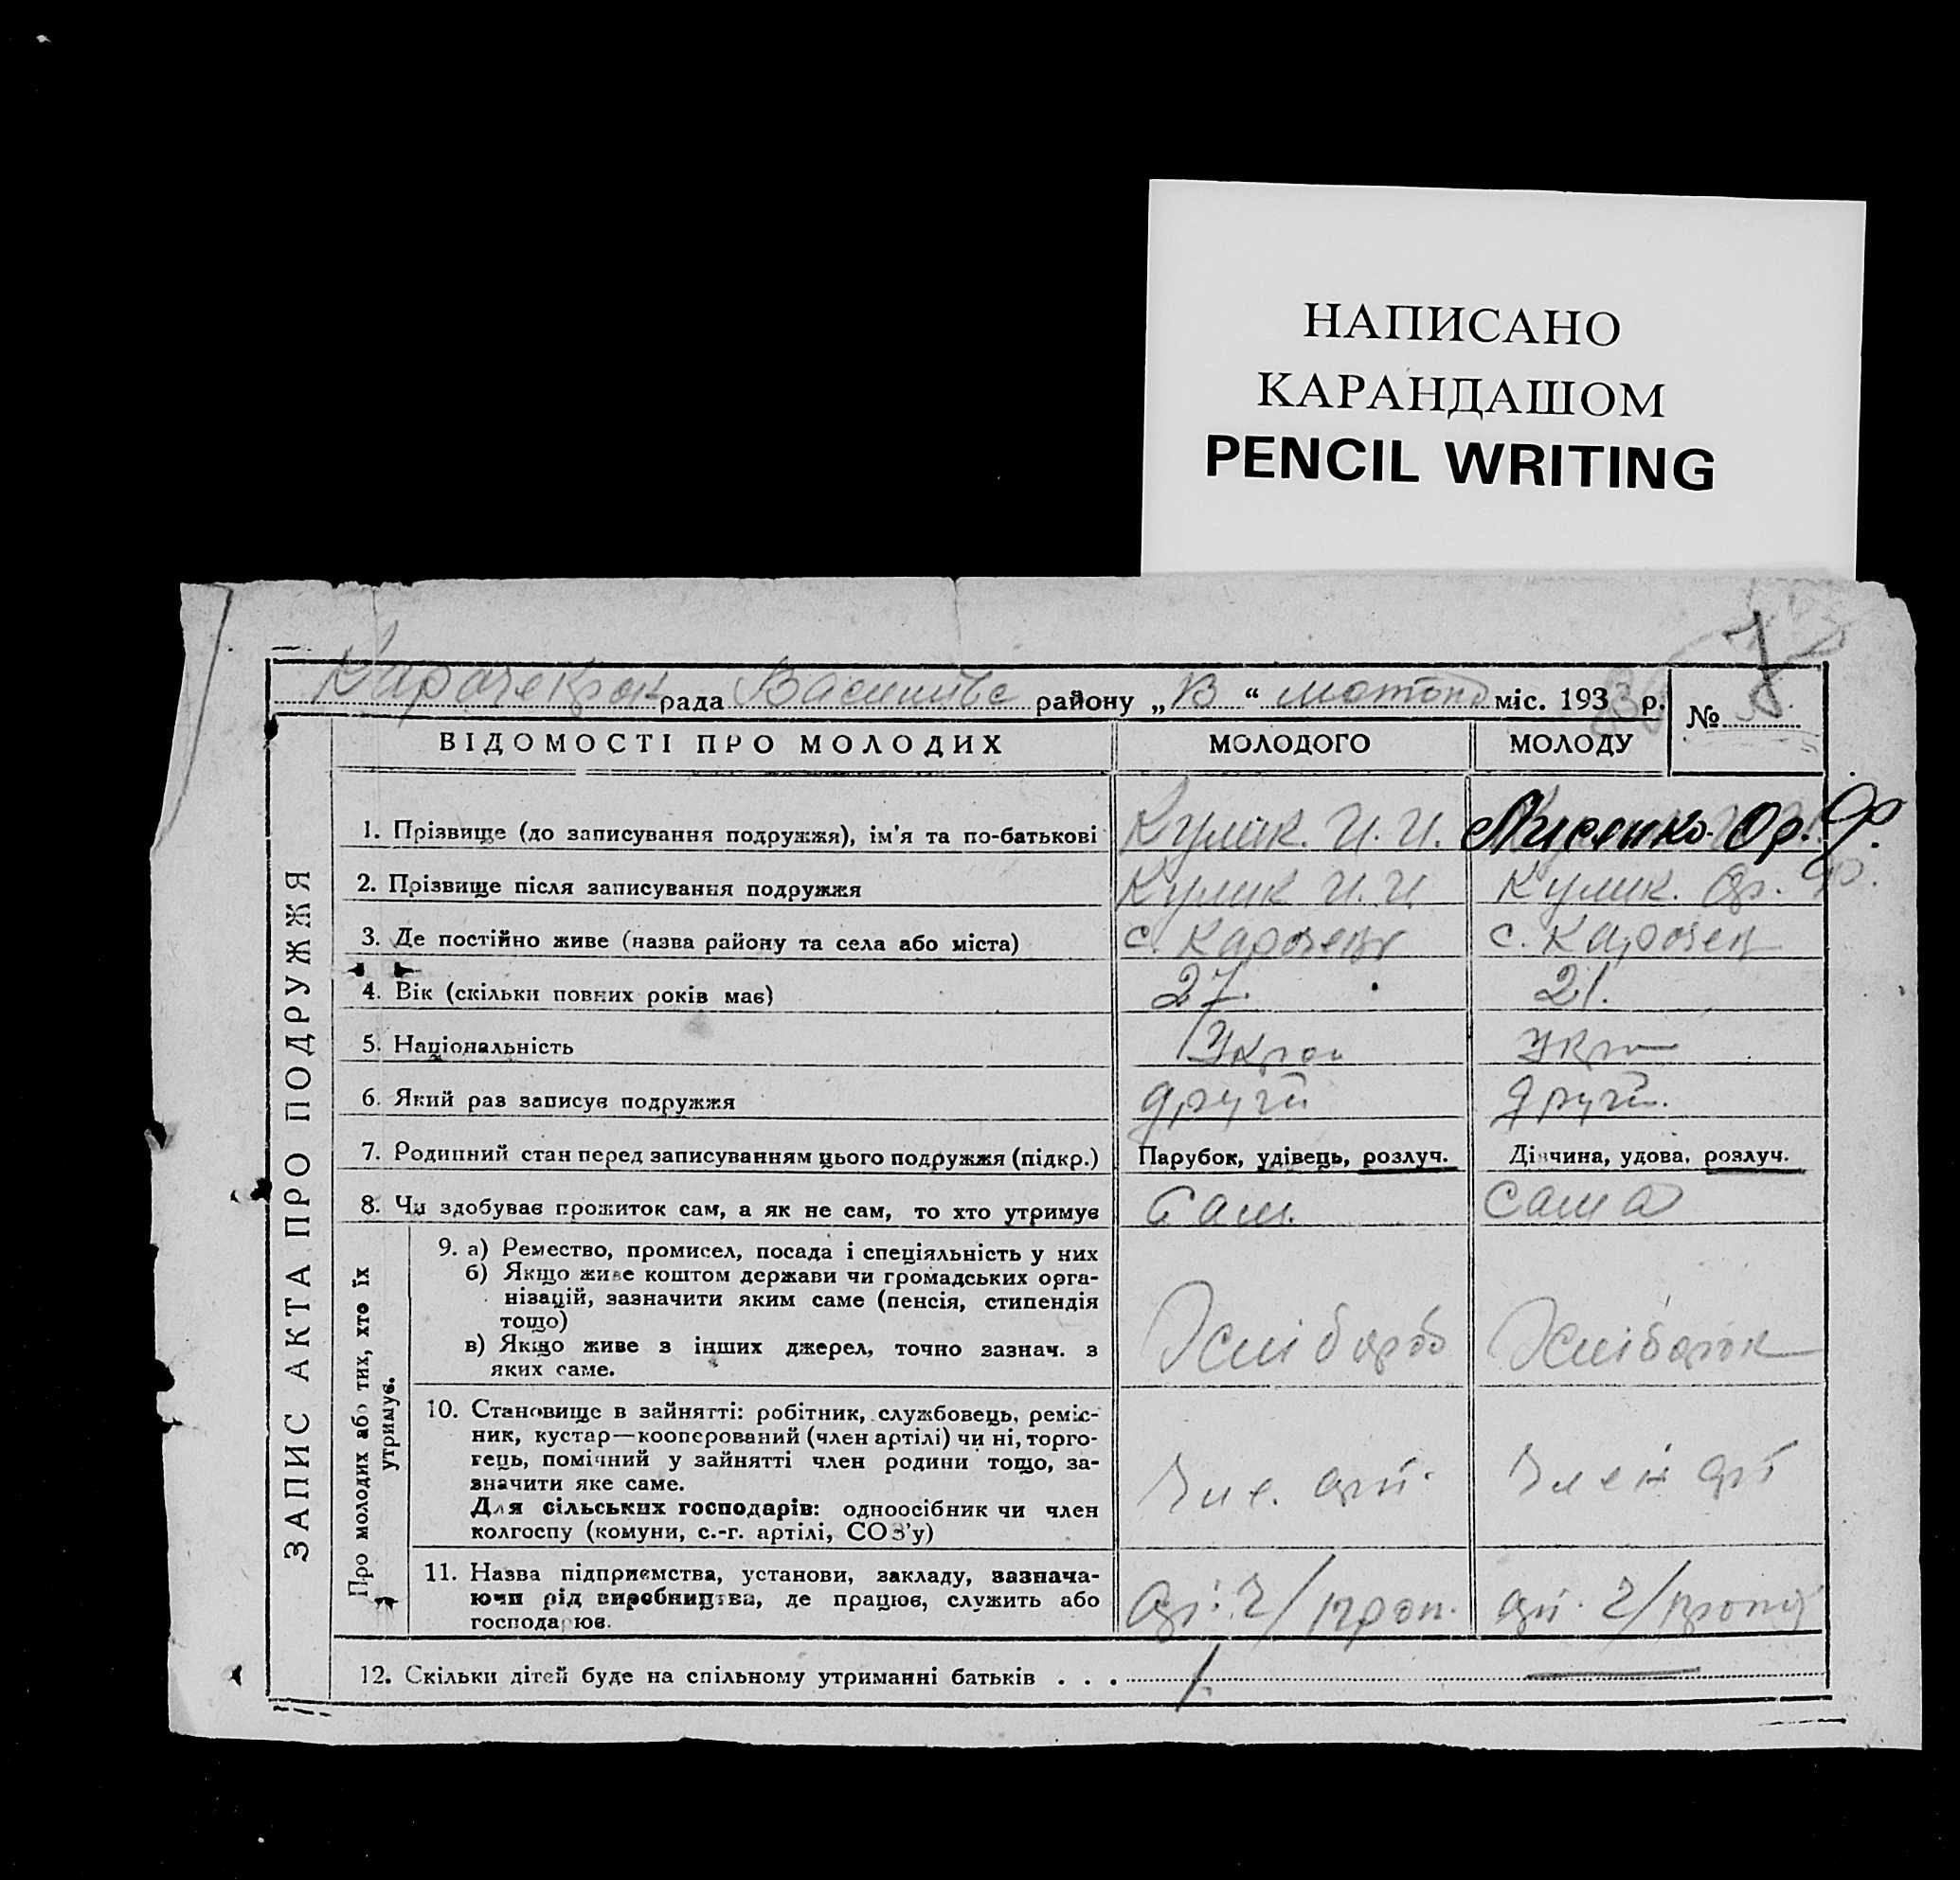 НАПИСАНО
КАРАНДАШОМ
PENCIL WRITING
рада Василівс району „13“ лютого міс. 193 р.
№
ЗАПИС АКТА ПРО ПОДРУЖЖЯ
ВІДОМОСТІ ПРО МОЛОДИХ МОЛОДОГО МОЛОДУ
1. Прізвище (до записування подружжя), ім'я та по-батькові Кулик. И. И. Лисенко Ор. Ф.
2. Прізвище після записування подружжя Кулик И. И. Кулик. Ор. Ф.
3. Де постійно живе (назва району та села або міста) с. с.
4. Вік (скільки повних років має) 27. 21.
5. Національність Укра Укр
6. Який раз записує подружжя другий другий.
7. Родинний стан перед записуванням цього подружжя (підкр.) Парубок, удівець, розлуч. Дівчина, удова, розлуч.
8. Чи здобуває прожиток сам, а як не сам, то хто утримує Сам. Сама
Про молодих або тих, хто їх утримує.
9. а) Ремество, промисел, посада і спеціяльність у них
б) Якщо живе коштом держави чи громадських орга-
нізацій, зазначити яким саме (пенсія, стипендія
тощо)
в) Якщо живе з інших джерел, точно зазнач. з
яких саме.
10. Становище в зайнятті: робітник, службовець, реміс-
ник, кустар—кооперований (член артілі) чи ні, торго-
гець, помічний у зайнятті член родини тощо, за-
значити яке саме.
Для сільських господарів: одноосібник чи член
колгоспу (комуни, с.-г. артілі, СОЗ'у)
Член
11. Назва підприємства, установи, закладу, зазнача-
ючи рід виробництва, де працює, служить або
господарює.
12. Скільки дітей буде на спільному утриманні батьків . . . 1. —